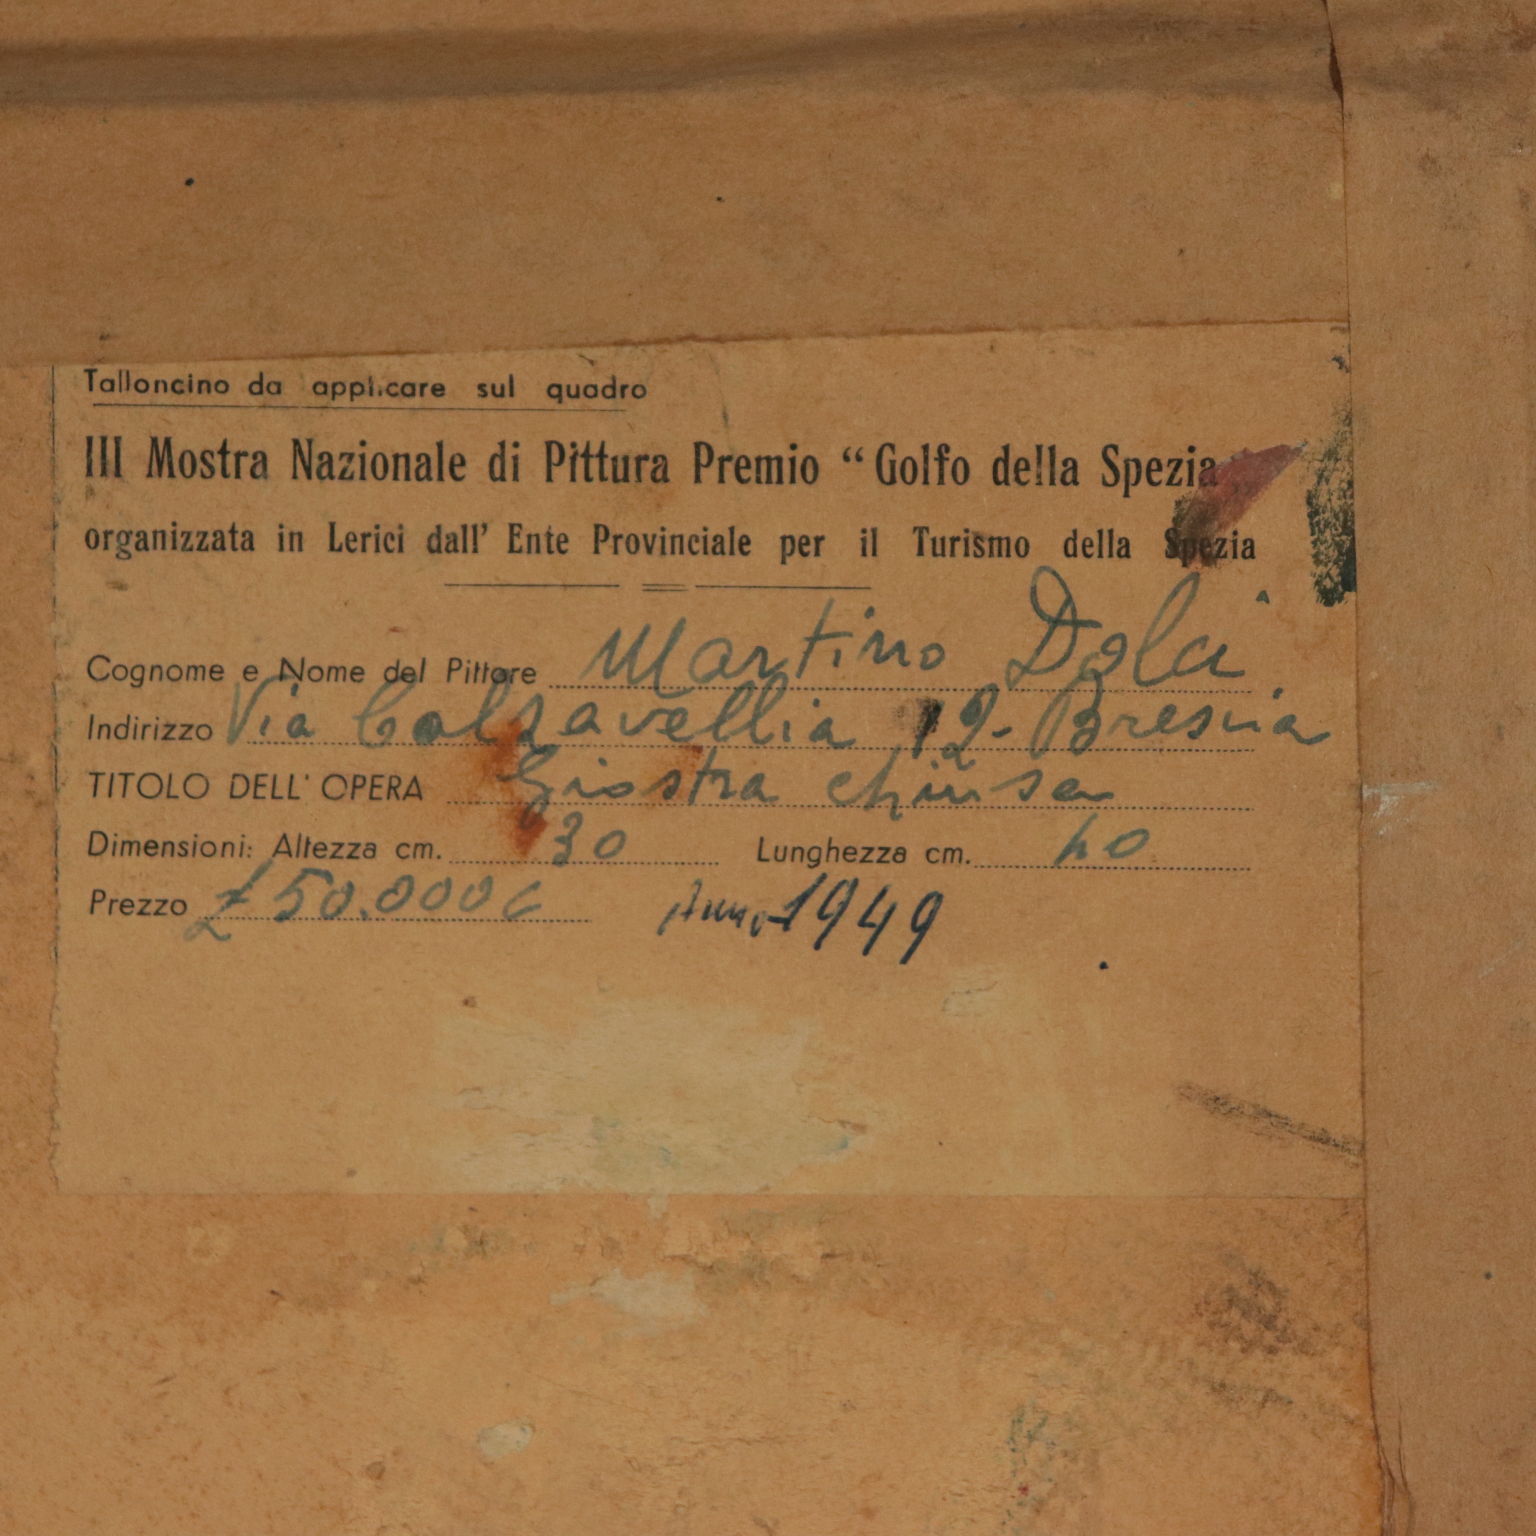 Talloncino da applicare sul quadro
III Mostra Nazionale di Pittura Premio “Golfo della Spezia
organizzata in Lerici dall' Ente Provinciale per il Turismo della Spezia
Cognome e Nome del Pittore Martino Dolci
Indirizzo Via Calzavellia 12 - Brescia
TITOLO DELL' OPERA Giostra chiusa
Dimensioni: Altezza cm. 30 Lunghezza cm. 40
Prezzo £ 50.000 Anno 1949